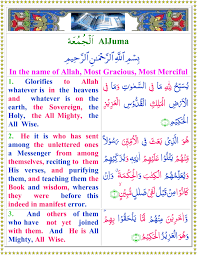 AlJuma الْجُمُعَة
بِسْمِ اللَّهِ الرَّحْمَٰنِ الرَّحِيمِ
In the name of Allah, Most Gracious, Most Merciful
1. Glorifies to Allah
whatever is in the heavens
and whatever is on the
earth, the Sovereign, the
Holy, the All Mighty, the
All Wise.
يُسَبِّحُ لِلَّهِ مَا فِي السَّمَٰوَٰتِ وَمَا فِي
الْأَرْضِ الْمَلِكِ الْقُدُّوسِ الْعَزِيزِ
الْحَكِيمِ
2. He it is who has sent
among the unlettered ones
a Messenger from among
themselves, reciting to them
His verses, and purifying
them, and teaching them the
Book and wisdom, whereas
they were before this
indeed in manifest error.
هُوَ الَّذِي بَعَثَ فِي الْأُمِّيِّينَ رَسُولًا
3. And others of them
who have not yet joined
with them. And He is All
Mighty, All Wise.
وَآخَرِينَ مِنْهُمْ لَمَّا يَلْحَقُوا بِهِمْ
وَهُوَ الْعَزِيزُ الْحَكِيمُ